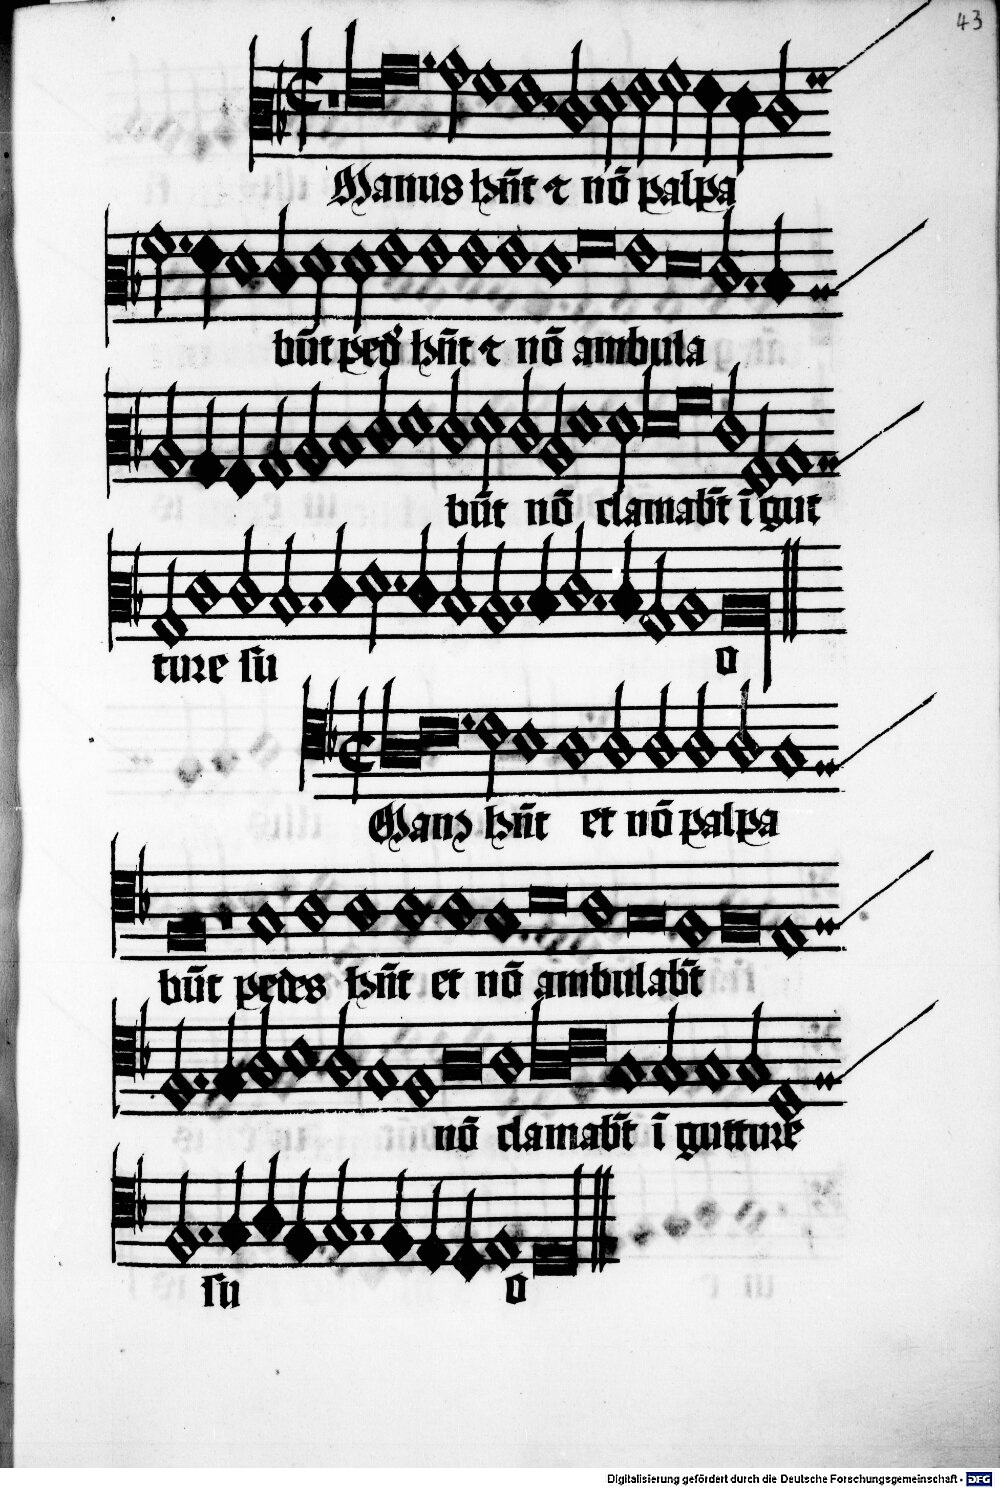 43
Manus hn̄t et nō palpa
būt ped' hn̄t et nō ambula
būt nō clamab̄t ī gut
ture su
o
Man9 hn̄t et nō palpa
būt pedes hn̄t et nō ambulab̄t
nō clamab̄t ī gutture
su o
Digitalisierung gefördert durch die Deutsche Forschungsgemeinschaft - DFG